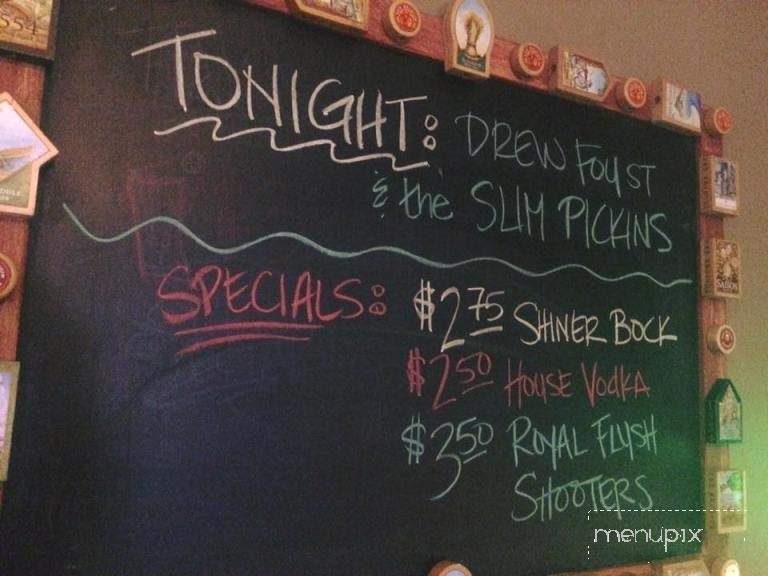 TONIGHT: DREW FOUST
& the SLIM PICKINS
SPECIALS: $2.75 SHINER BOCK
$2.50 HOUSE VODKA
$3.50 ROYAL FLUSH
SHOOTERS
menupix